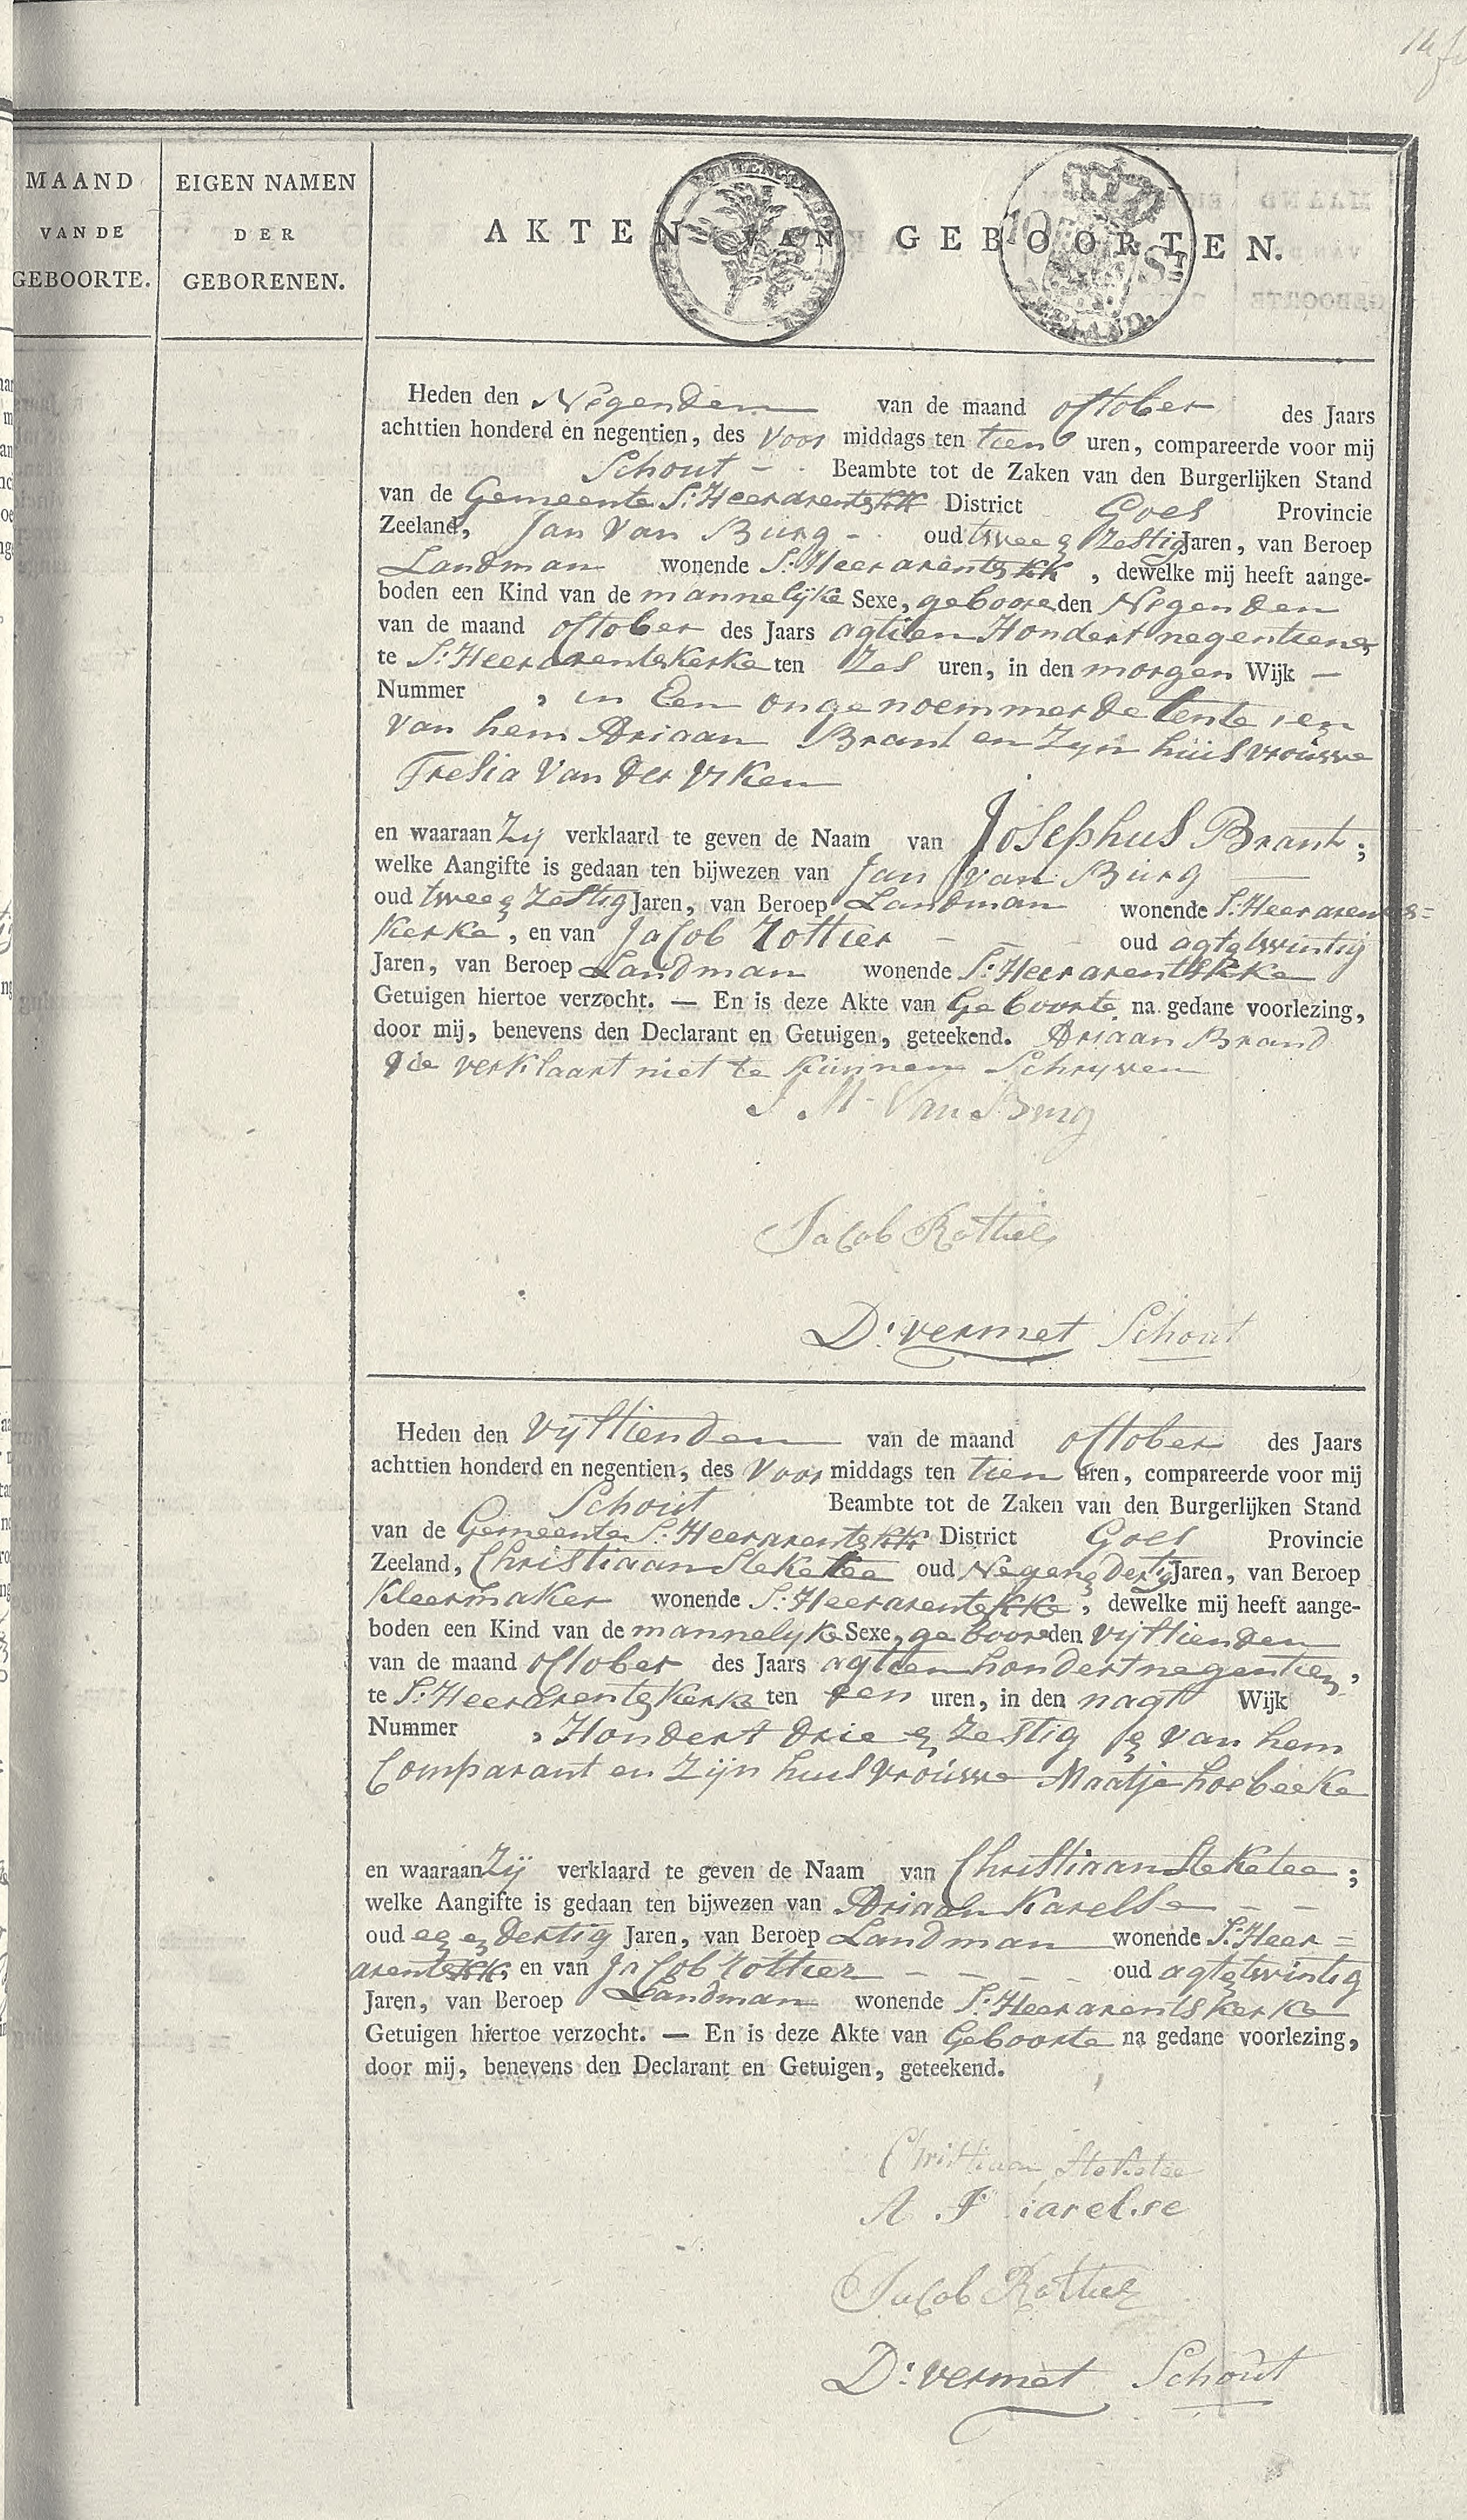 MAAND
VAN DE
GEBOORTE.
EIGEN NAMEN
DER
GEBORENEN.
AKTEN VAN GEBOORTEN.
Heden den Negenden van de maand october des Jaars
achttien honderd en negentien, des Voor middags ten tien uren, compareerde voor mij
Schout Beambte tot de Zaken van den Burgerlijken Stand
van de Gemeente S:Heerarentskk District Goes Provincie
Zeeland, Jan Van Burg oud twee & Zestig Jaren, van Beroep
Landman wonende S:Heerarentskk, dewelke mij heeft aange-
boden een Kind van de mannelijke Sexe, geboore den Negenden
van de maand october des Jaars agtien Hondert negentien
te S:Heerarentskerke ten Zes uren, in den morgen Wijk —
Nummer , in Een ongenoemmerde tente, en
van hem Adriaan Brant en Zyn huisvrouwe
Fresia Van der
en waaraan Zij verklaard te geven de Naam van Josephus Brant;
welke Aangifte is gedaan ten bijwezen van Jan Van Burg
oud twee & Zestig Jaren, van Beroep Landman wonende S:Heerarents=
kerke, en van Jacob Rottier oud agt&twintig
Jaren, van Beroep Landman wonende S:Heerarentskke
Getuigen hiertoe verzocht. — En is deze Akte van Geboorte na gedane voorlezing,
door mij, benevens den Declarant en Getuigen, geteekend. Adriaan Brand
die verklaart niet te kunnen Schryven
J. M. Van Burg
Jacob Rottier
D: vermet Schout
Heden den Vijftienden van de maand october des Jaars
achttien honderd en negentien, des Voor middags ten tien uren, compareerde voor mij
Schout Beambte tot de Zaken van den Burgerlijken Stand
van de Gemeente S:Heerarentskk District Goes Provincie
Zeeland, Christiaan Steketee oud Negen & Dertig Jaren, van Beroep
Kleermaker wonende S:Heerarentskke, dewelke mij heeft aange-
boden een Kind van de mannelyke Sexe, geboore den vijftienden
van de maand october des Jaars agtien hondert negentien,
te S:Heerarentskerke ten een uren, in den nagt Wijk
Nummer , Hondert drie & Zestig & van hem
Comparant en Zijn huisvrouwe Maatje hoebeeke
en waaraan Zij verklaard te geven de Naam van Christiaan Steketee;
welke Aangifte is gedaan ten bijwezen van Adriaan Karelse
oud een & dertig Jaren, van Beroep Landman wonende S:Heer=
arentskk, en van Jacob Rottier oud agt&twintig
Jaren, van Beroep Landman wonende S:Heerarentskerke
Getuigen hiertoe verzocht. — En is deze Akte van Geboorte na gedane voorlezing,
door mij, benevens den Declarant en Getuigen, geteekend.
Christiaan Steketee
A. J karelse
Jacob Rottier
D: vermet Schout